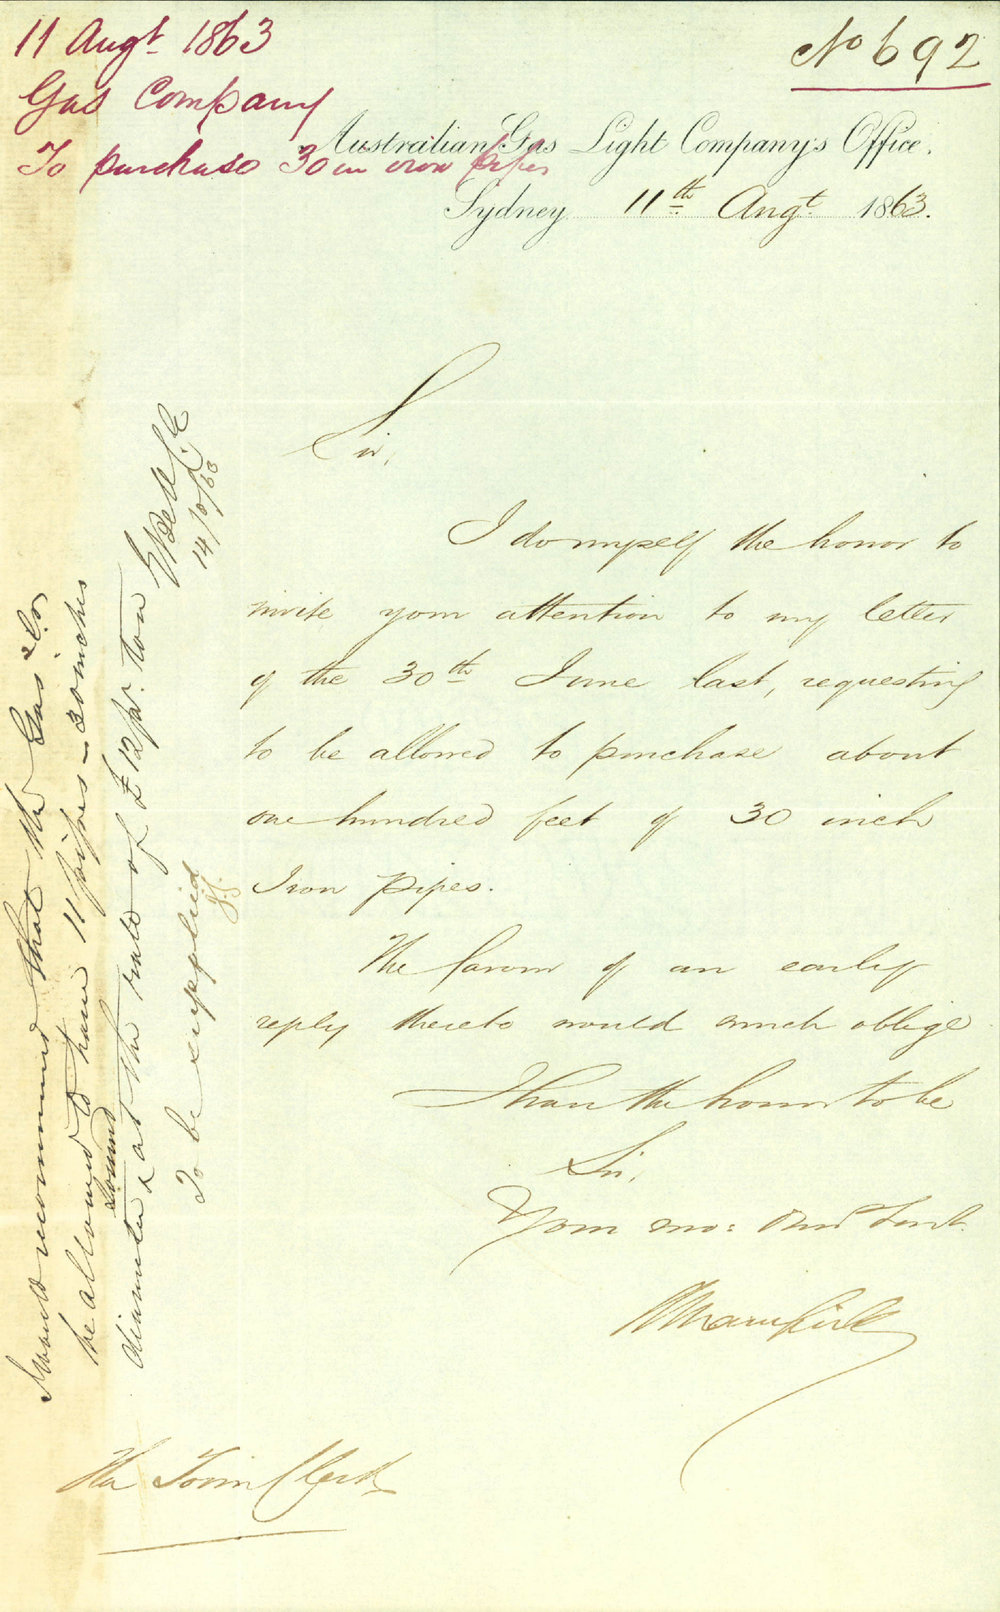 11 Augt. 1863
Gas Company
To purchase 30 in iron pipes
No 692
Australian Gas Light Company's Office,
Sydney 11th Augt. 1863.
Sir,
I do myself the honor to
invite your attention to my letter
of the 30th June last, requesting
to be allowed to purchase about
one hundred feet of 30 inch
Iron pipes.
The favour of an early
reply thereto would much oblige
I have the honor to be
Sir,
Your mo: Obdt Servt.
The Town Clerk
I would recommend that the Gas Co
be allowed to have 11 pipes - 30 inches
diameter at the rate of £12 pr. ton
14/10/63
To be supplied
J.G.